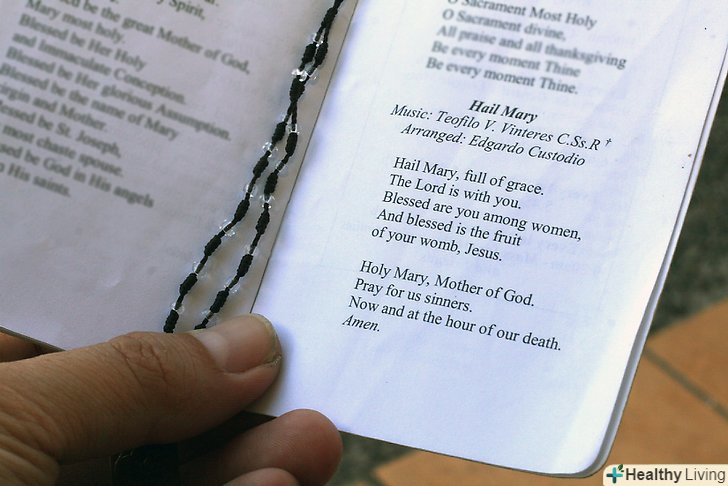 be the great Mother of God,
Mary most holy.
Blessed be Her Holy
and Immaculate Conception.
Blessed be Her glorious Assumption.
Blessed be the name of Mary
Virgin and Mother.
Blessed be St. Joseph,
most chaste spouse.
be God in His angels
His saints.
O Sacrament Most Holy
O Sacrament divine,
All praise and all thanksgiving
Be every moment Thine
Be every moment Thine.
Hail Mary
Music: Teofilo V. Vinteres C.Ss.R †
Arranged: Edgardo Custodio
Hail Mary, full of grace.
The Lord is with you.
Blessed are you among women,
And blessed is the fruit
of your womb, Jesus.
Holy Mary, Mother of God.
Pray for us sinners.
Now and at the hour of our death.
Amen.
Healthy Living